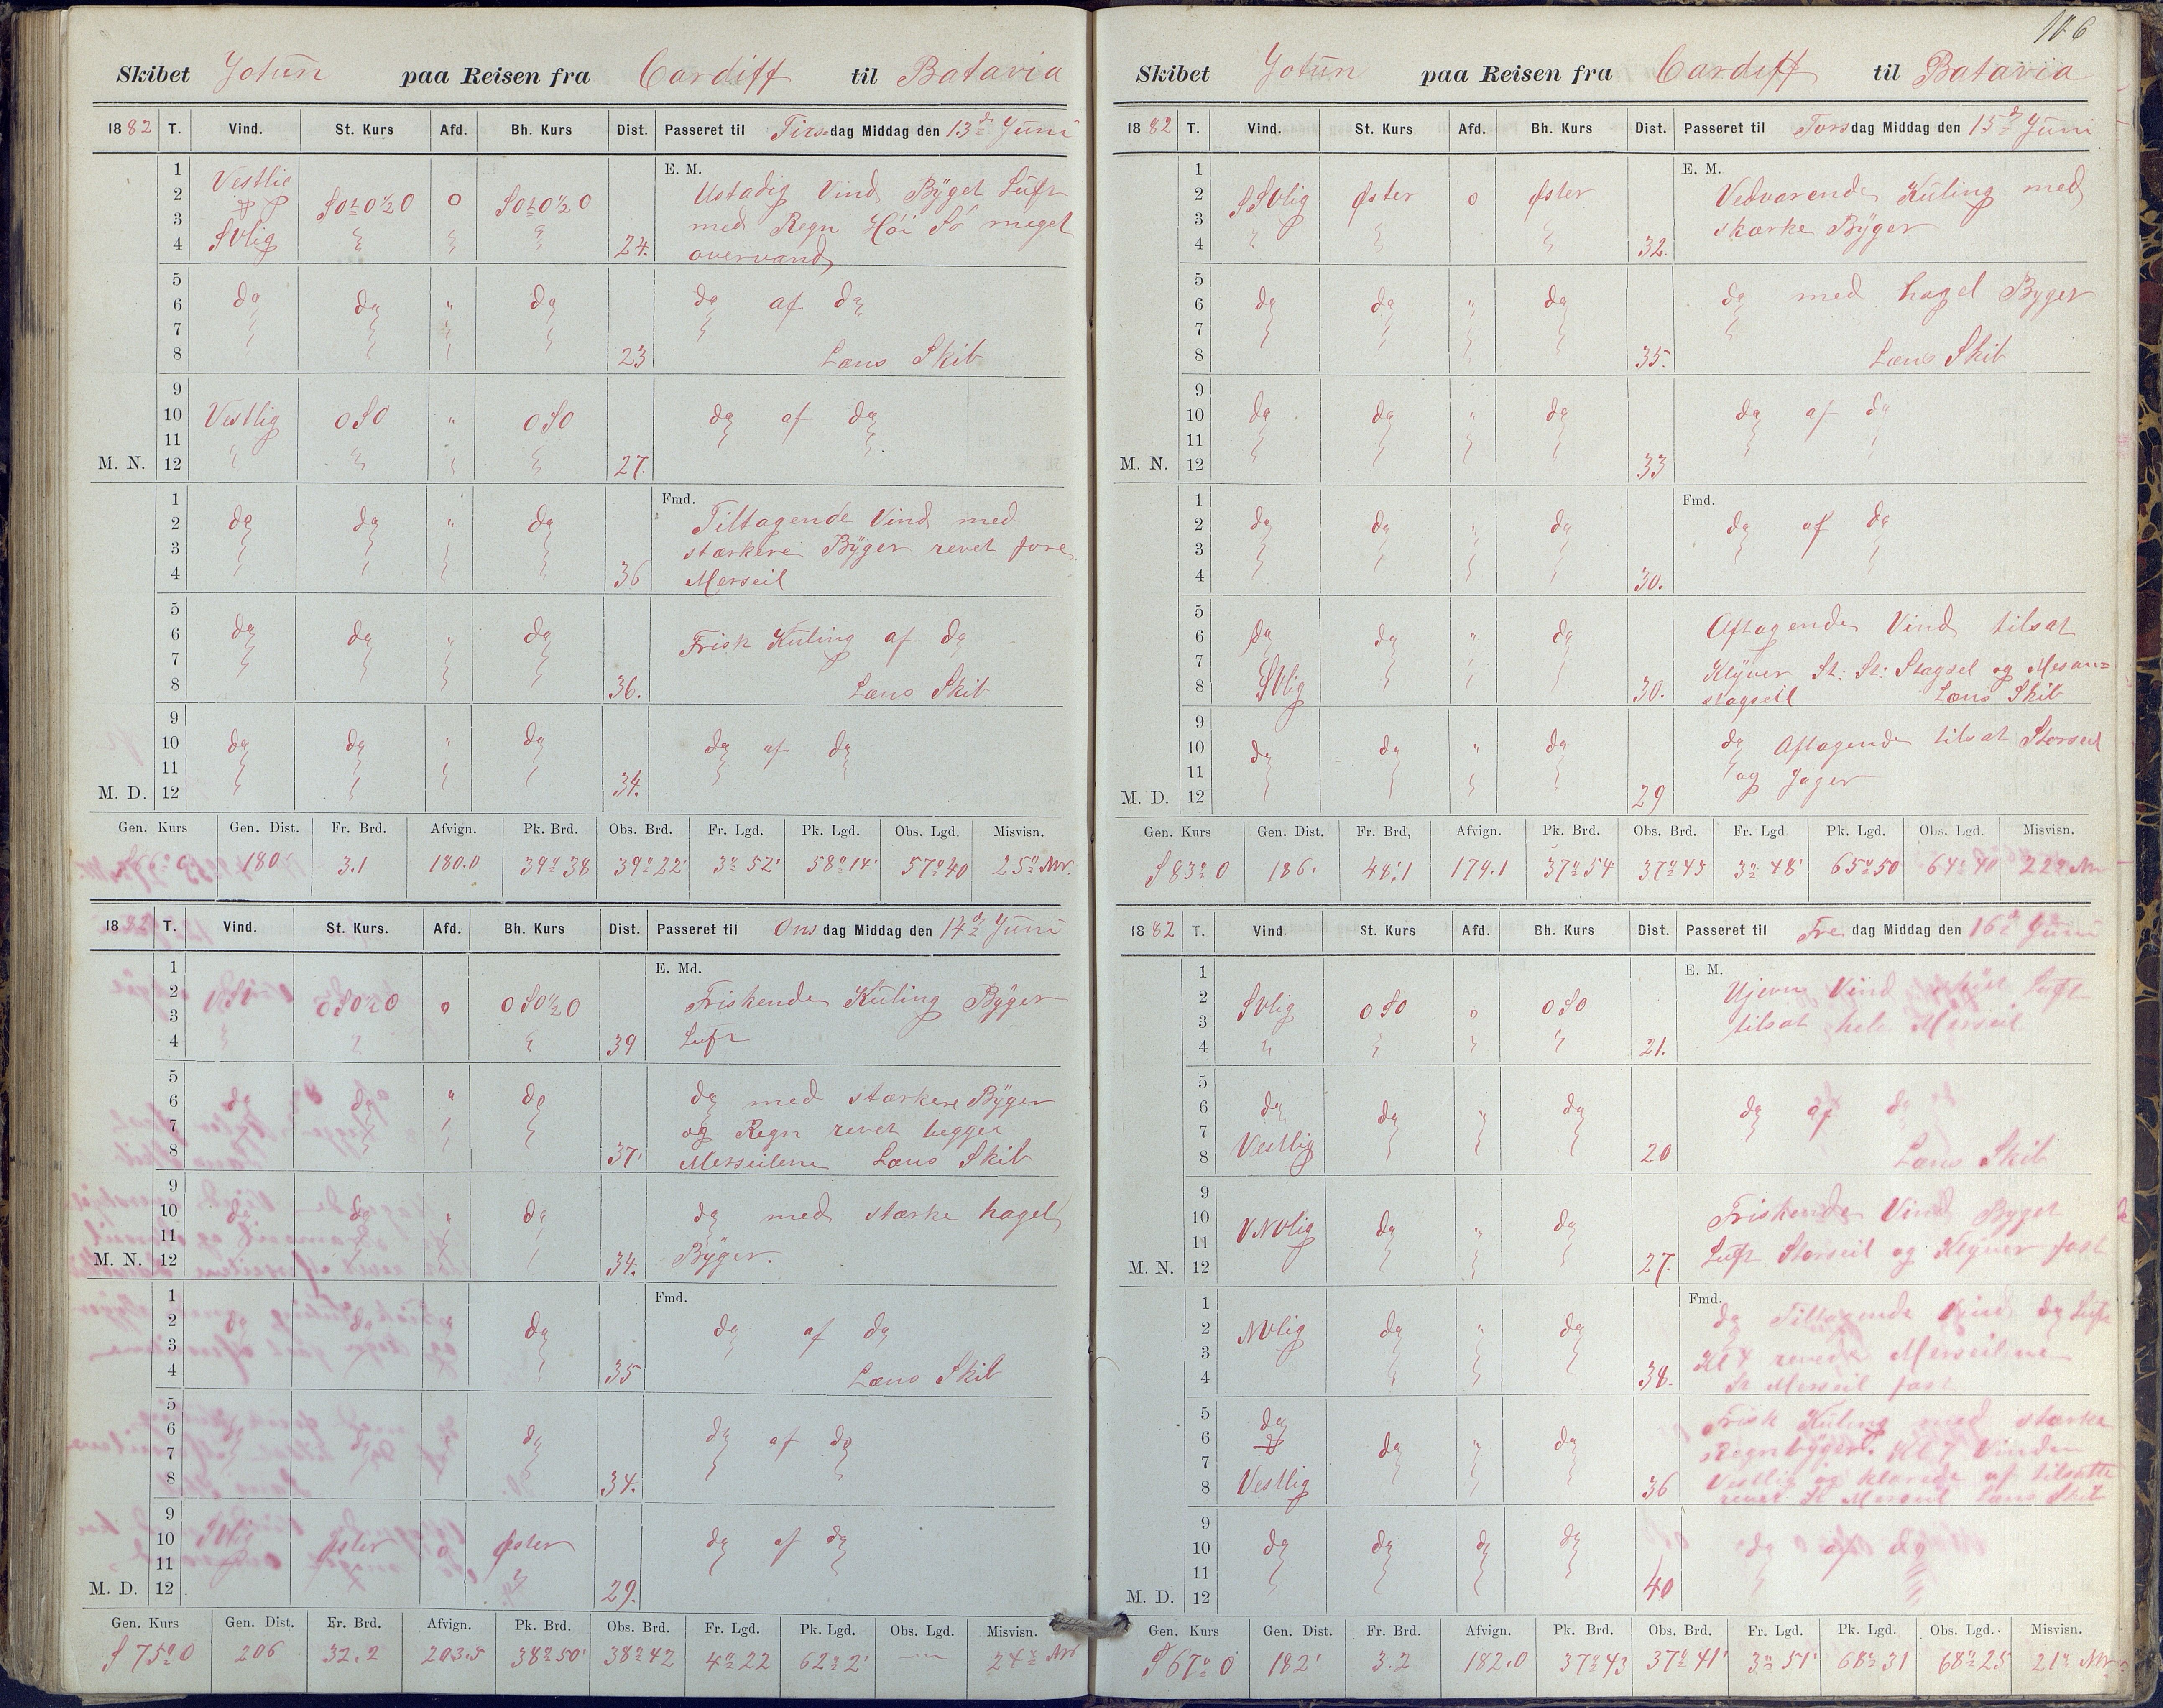 Skibet Jotun paa Reisen fra Cardiff til Batavia
1882 T. Vind. St. Kurs Afd. Bh. Kurs Dist. Passeret til Tirsdag Middag den 13de Juni
E. M.
1 Vestlig
2 SOtO½O 0 SOtO½O Ustadig Vind Byget Luft
3 SVlig med Regn Höi Sö meget
4 24. overvand
5
6 do do " do do af do
7
8 23 Læns Skib
9
10 Vestlig OSO " OSO do af do
11
M. N. 12 27.
Fmd.
1 Tiltagende Vind med
2 do do " do
3 stærkere Byger revet fore
4 36 Merseil
5
6 do do " do Frisk Kuling af do
7
8 36. Læns Skib
9
10 do do " do do af do
11
M. D. 12 34.
Gen. Kurs Gen. Dist. Fr. Brd. Afvign. Pk. Brd. Obs. Brd. Fr. Lgd. Pk. Lgd. Obs. Lgd. Misvisn.
180 3.1 180.0 39° 38 39° 22' 3° 52' 58° 14' 57° 40 25° NV.
1882 T. Vind. St. Kurs. Afd. Bh. Kurs Dist. Passeret til Onsdag Middag den 14de Juni
E. Md.
1
2 VSV OSO½O 0 OSO½O Friskende Kuling Byger
3
4 39 Luft
5
6 do do " do do med stærkere Byger
7 og Regn revet begge
8 37' Merseilene Læns Skib
9
10 do do " do do med stærke hagel
11
M. N. 12 34. Byger.
Fmd.
1
2 do do do do af do
3
4 35 Læns Skib
5
6 do do do do af do
7
8 34.
9
10 SVlig Øster Øster do af do
11
M. D. 12 29.
Gen. Kurs Gen. Dist. Fr. Brd. Afvign. Pk. Brd. Obs. Brd. Fr. Lgd. Pk. Lgd. Obs. Lgd. Misvisn.
S 75° O 206 32.2 203.5 38° 50' 38° 42 4° 22 62° 2' — 24° NV
106
Skibet Jotun paa Reisen fra Cardiff til Batavia
1882 T. Vind. St. Kurs Afd. Bh. Kurs Dist. Passeret til Torsdag Middag den 15de Juni
E. M.
1
2 SSVlig Øster 0 Øster Vedvarende Kuling med
3 stærke Byger
4 32.
5
6 do do " do do med hagel Byger
7
8 35. Læns Skib
9
10 do do " do do af do
11
M. N. 12 33
Fmd.
1
2 do do " do do af do
3
4 30.
5
6 do do " do Aftagende Vind tilsat
7 Klyver St: St: Stagsel og Mesan=
8 SVlig 30. stagseil Læns Skib
9
10 do do " do do Aftagende tilsat Storseil
11 og Jager
M. D. 12 29
Gen. Kurs Gen. Dist. Fr. Brd, Afvign. Pk. Brd. Obs. Brd. Fr. Lgd Pk. Lgd. Obs. Lgd. Misvisn.
S 83° O 186. 48.1 179.1 37° 54 37° 45 3° 48' 65° 50 64° 40 22° NV
1882 T. Vind. St. Kurs Afd. Bh. Kurs Dist. Passeret til Fredag Middag den 16de Juni
E. M.
1 Ujevn Vind Luft
2 SVlig OSO " OSO
3 tilsat hele Merseil
4 21.
5
6 do do " do do af do
7
8 Vestlig 20 Læns Skib
9
10 VNVlig do " do Friskende Vind Byget
11 Luft Storseil og Klyver fast
M. N. 12 27.
Fmd.
1 do Tiltagende Vind do Luft
2 NVlig do " do
3 Kl 4 revede Merseilene
4 38. St Merseil fast
5 do Frisk Kuling med stærke
6 do " do Regnbyger. Kl 7 Vinden
7 Vestlig og klarede af tilsatte
8 Vestlig 36 revet St Merseil Læns Skib
9
10 do do do do do af do
11
M. D. 12 40
Gen. Kurs Gen. Dist. Fr. Brd. Afvign. Pk. Brd. Obs. Brd. Fr. Lgd. Pk. Lgd. Obs. Lgd. Misvisn.
S 67° O 182' 3.2 182.0 37° 43 37° 41' 3° 51' 68° 31 68° 25 21° NV